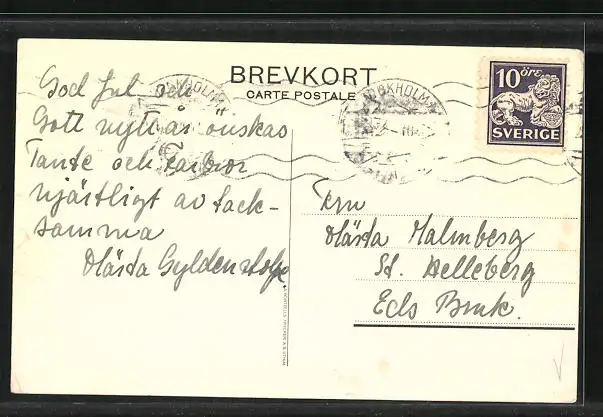 BREVKORT
CARTE POSTALE
10 öre
SVERIGE
STOCKHOLM
God Jul och
Gott nytt år önskas
Tante och farbror
hjärtligt av tack-
samma
Märta Gyldenstolpe
Fru
Märta Malmberg
St. Helleberg
Eds Bruk.